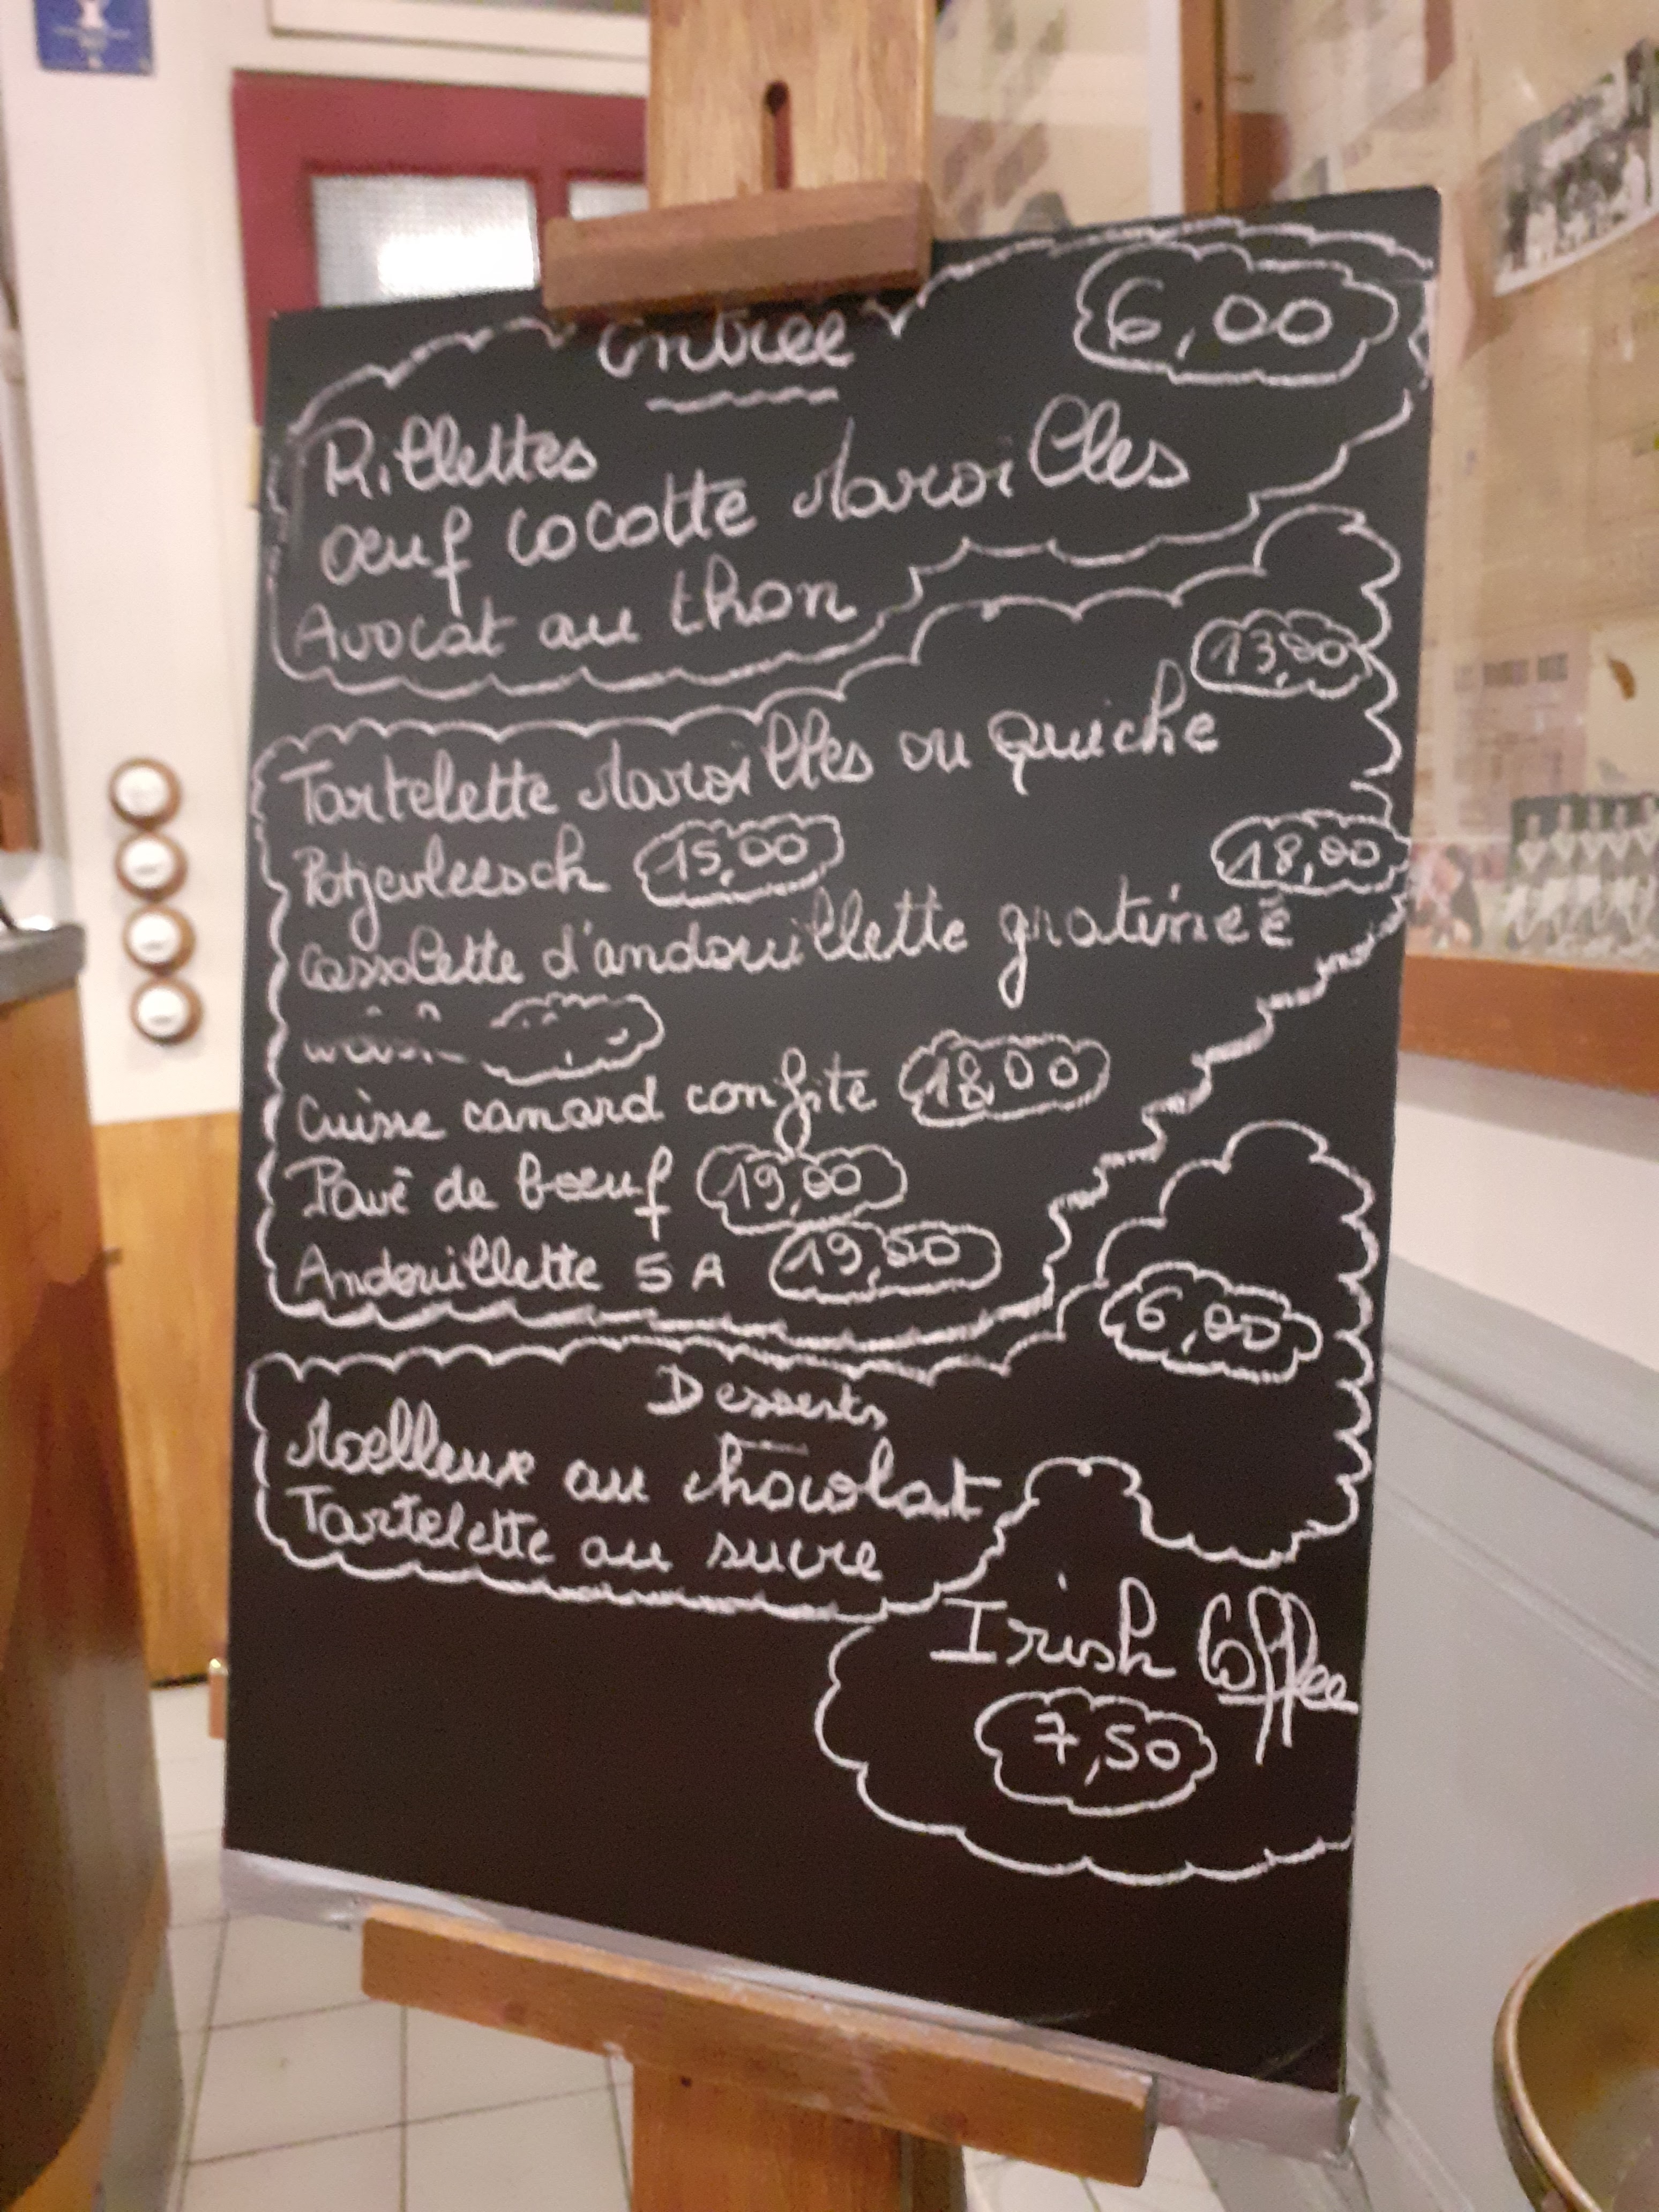 entrée 6,00
Rillettes
œuf cocotte Maroilles
Avocat au thon
13,00
Tartelette Maroilles ou Quiche
Potjevleesch 15,00
18,00
Cassolette d'andouillette gratinée
Cuisse canard confite 18,00
Pavé de bœuf 19,00
Andouillette 5 A 19,50
6,00
Desserts
Moelleux au chocolat
Tartelette au sucre
Irish Coffee
7,50